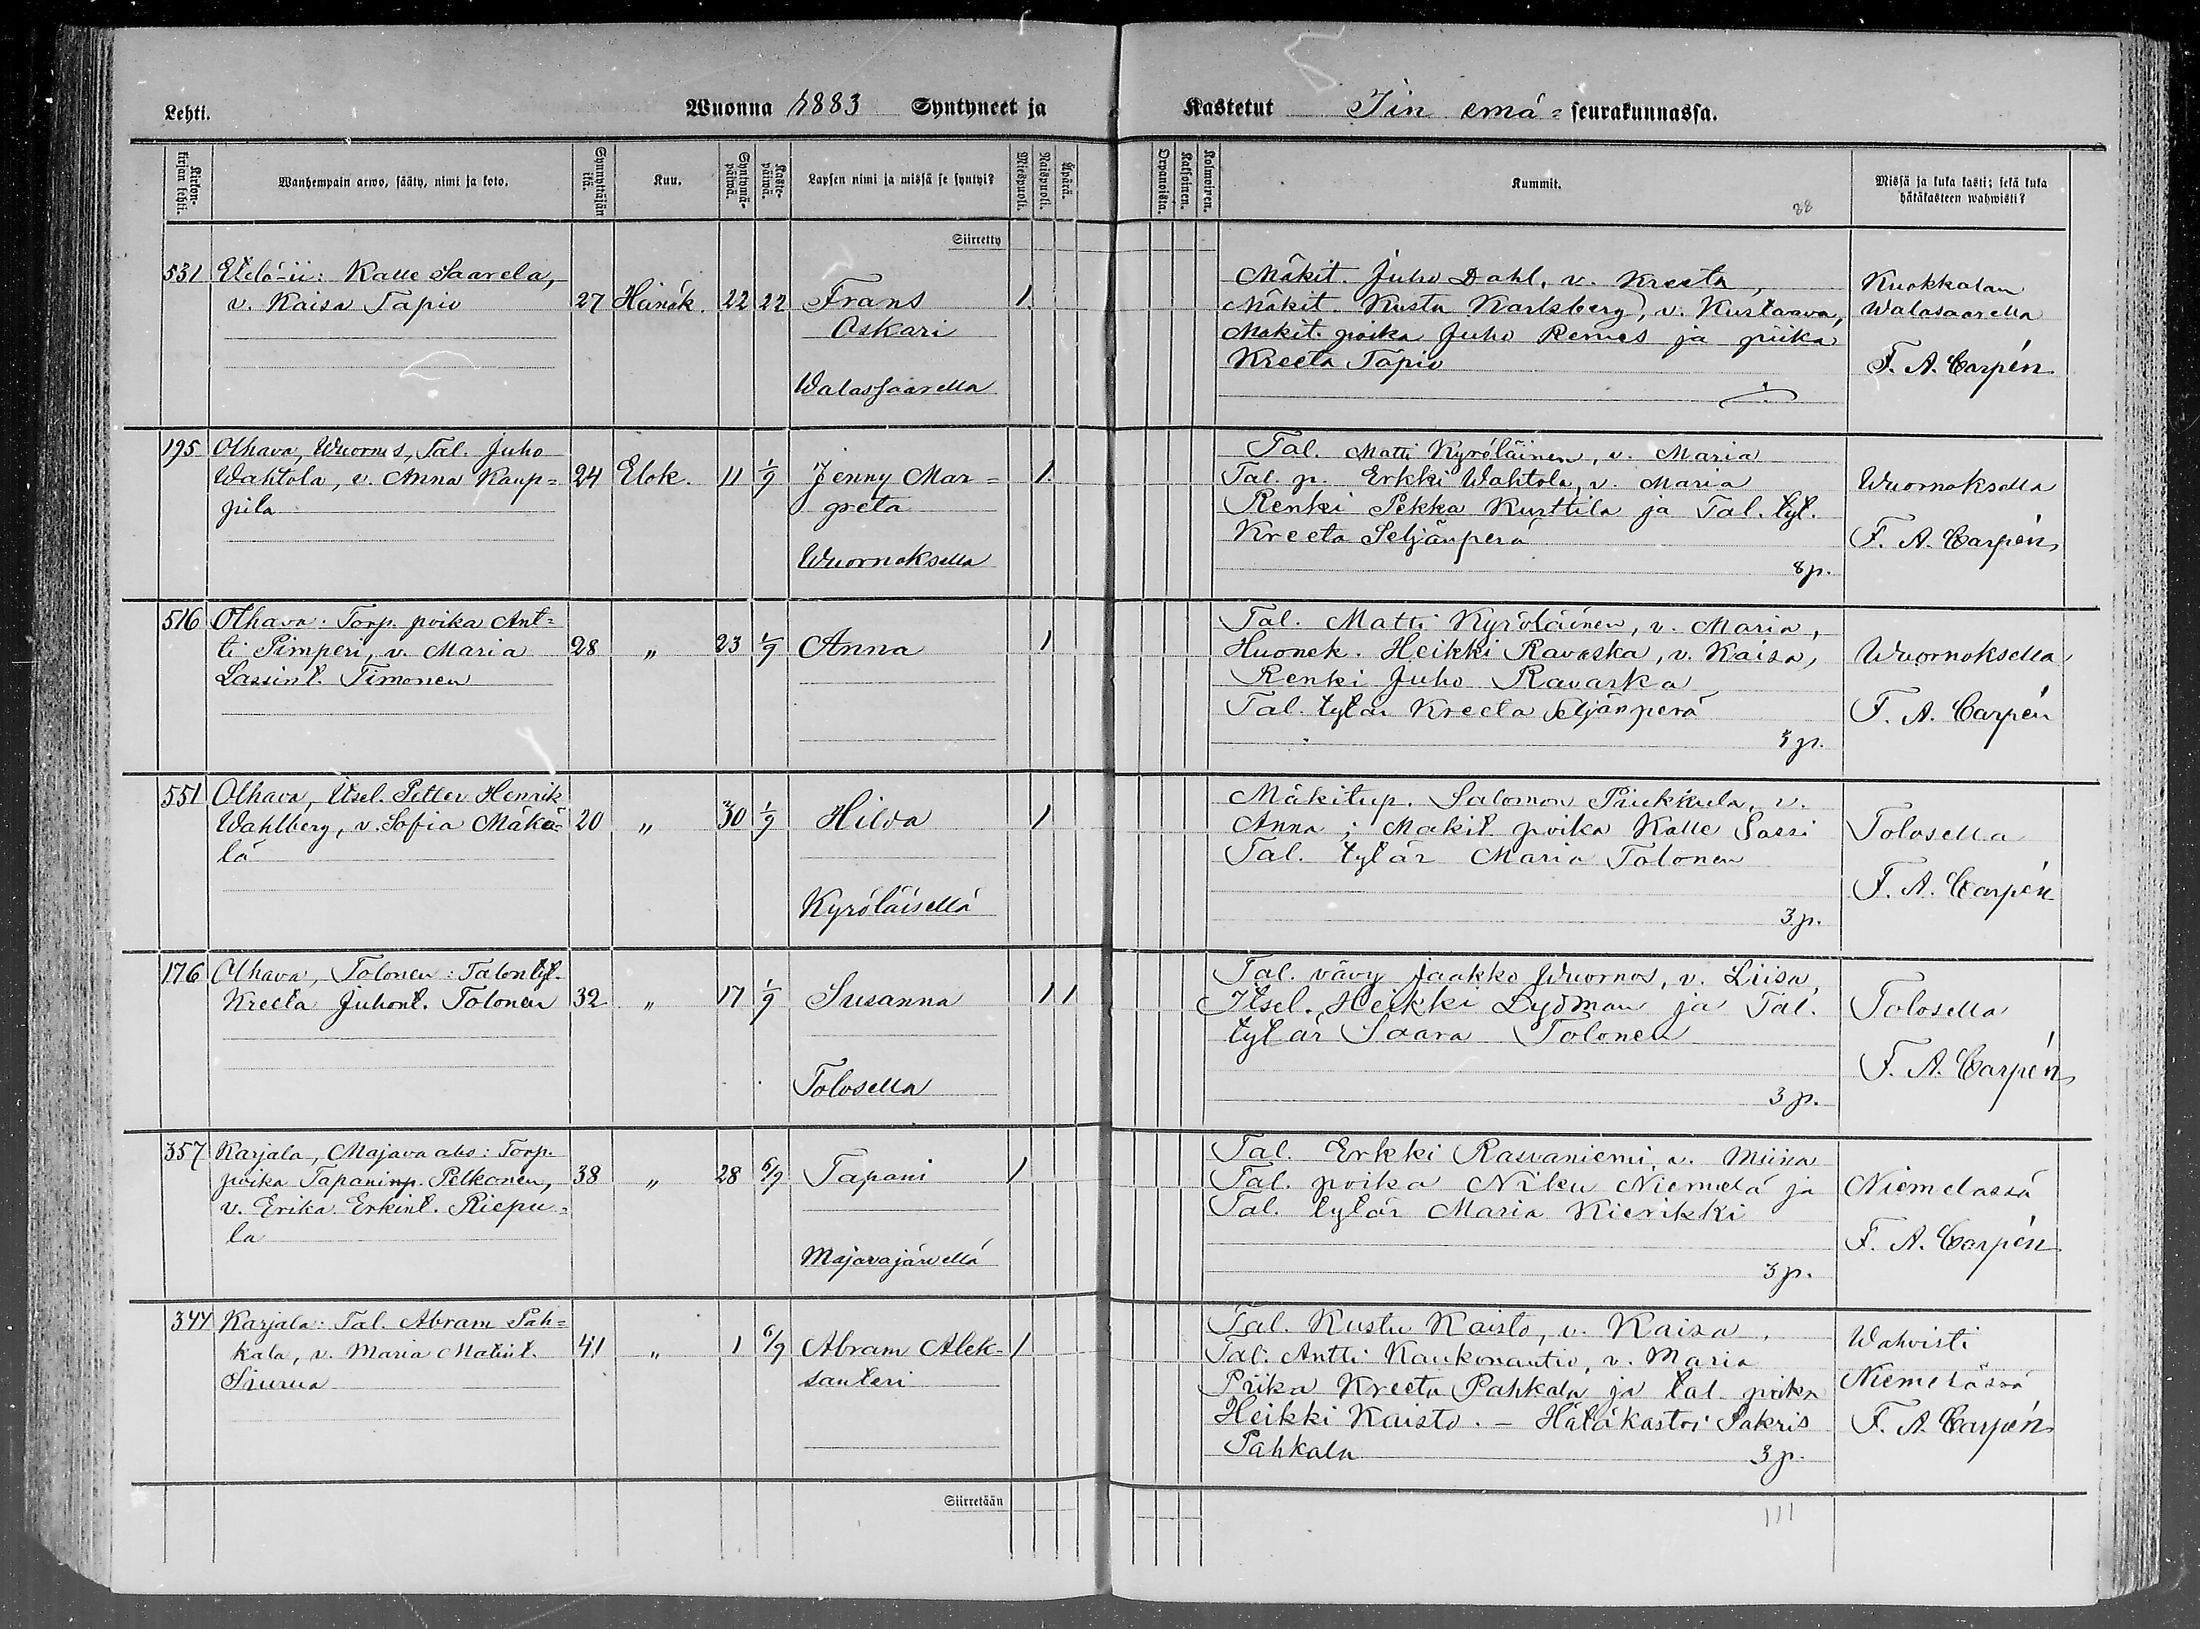 Lehti.
Wuonna 1883 Syntyneet ja Kastetut Iin emä- seurakunnassa.
Kirkonkirjan lehti.
Wanhempain arwo, sääty, nimi ja koto.
Synnyttäjän ikä.
Kuu.
Syntymäpäiwä.
Kastepäiwä.
Lapsen nimi ja missä se syntyi?
Miespuoli.
Naispuoli.
Äpärä.
Orpanoista.
Kaksoinen.
Kolmoinen.
Kummit.
88
Missä ja kuka kasti; sekä kuka
hätäkasteen wahwisti?
Siirretty
531 Etelä-ii: Kalle Saarela,
v. Kaisa Tapio 27 Heinäk. 22 22 Frans 1.
Oskari
Walassaarella
Mäkit. Juho Dahl, v. Kreeta,
Mäkit. Kusta Karlsberg, v. Kustaava,
Mäkit. poika Juho Remes ja piika
Kreeta Tapio
Kuokkalan
Walasaarella
F. A. Carpén
195 Olhava, Wuornos, Tal. Juho
Wahtola, v. Anna Kaup= 24 Elok. 11 1/9 Jenny Mar= 1.
pila greta
Wuornoksella
Tal. Matti Kyröläinen, v. Maria
Tal. p. Erkki Wahtola, v. Maria
Renki Pekka Kurttila ja Tal. tyt.
Kreeta Seljänperä
8 p.
Wuornoksella
F. A. Carpén
516 Olhava. Torp. poika Ant=
ti Pimperi, v. Maria 28 „ 23 1/9 Anna 1
Lassint. Timonen
Tal. Matti Kyröläinen, v. Maria,
Huonek. Heikki Ravaska, v. Kaisa,
Renki Juho Ravaska
Tal. tytär Kreeta Seljänperä
3 p.
Wuornoksella
F. A. Carpén
551 Olhava, Itsel. Petter Henrik
Wahlberg, v. Sofia Mäke= 20 „ 30 1/9 Hilda 1
lä
Kyröläisellä
Mäkitup. Salomon Piukkula, v.
Anna; Mäkit. poika Kalle Sassi
Tal. tytär Maria Tolonen
3 p.
Tolosella
F. A. Carpén
176 Olhava, Tolonen: Talontyt.
Kreeta Juhont. Tolonen 32 „ 17 1/9 Susanna 1 1
Tolosella
Tal. vävy Jaakko Wuornos, v. Liisa,
Itsel. Heikki Lydman ja Tal.
tytär Saara Tolonen
3 p.
Tolosella
F. A. Carpén
357 Karjala, Majava abo: Torp.
poika Tapaninp. Pelkonen, 38 „ 28 6/9 Tapani 1
v. Erika Erkint. Riepu=
la
Majavajärvellä
Tal. Erkki Rasvaniemi, v. Miina
Tal. poika Niku Niemelä ja
Tal. tytär Maria Kierikki
3 p.
Niemelässä
F. A. Carpén
344 Karjala: Tal. Abram Pah=
kala, v. Maria Matint. 41 „ 1 6/9 Abram Alek- 1
Siurua santeri
Tal. Kustu Kaisto, v. Kaisa,
Tal. Antti Kaukonautio, v. Maria
Piika Kreeta Pahkala ja tal. poika
Heikki Kaisto. — Hätäkastoi Sakris
Pahkala 3 p.
Wahvisti
Niemelässä
F. A. Carpén
Siirretään
111